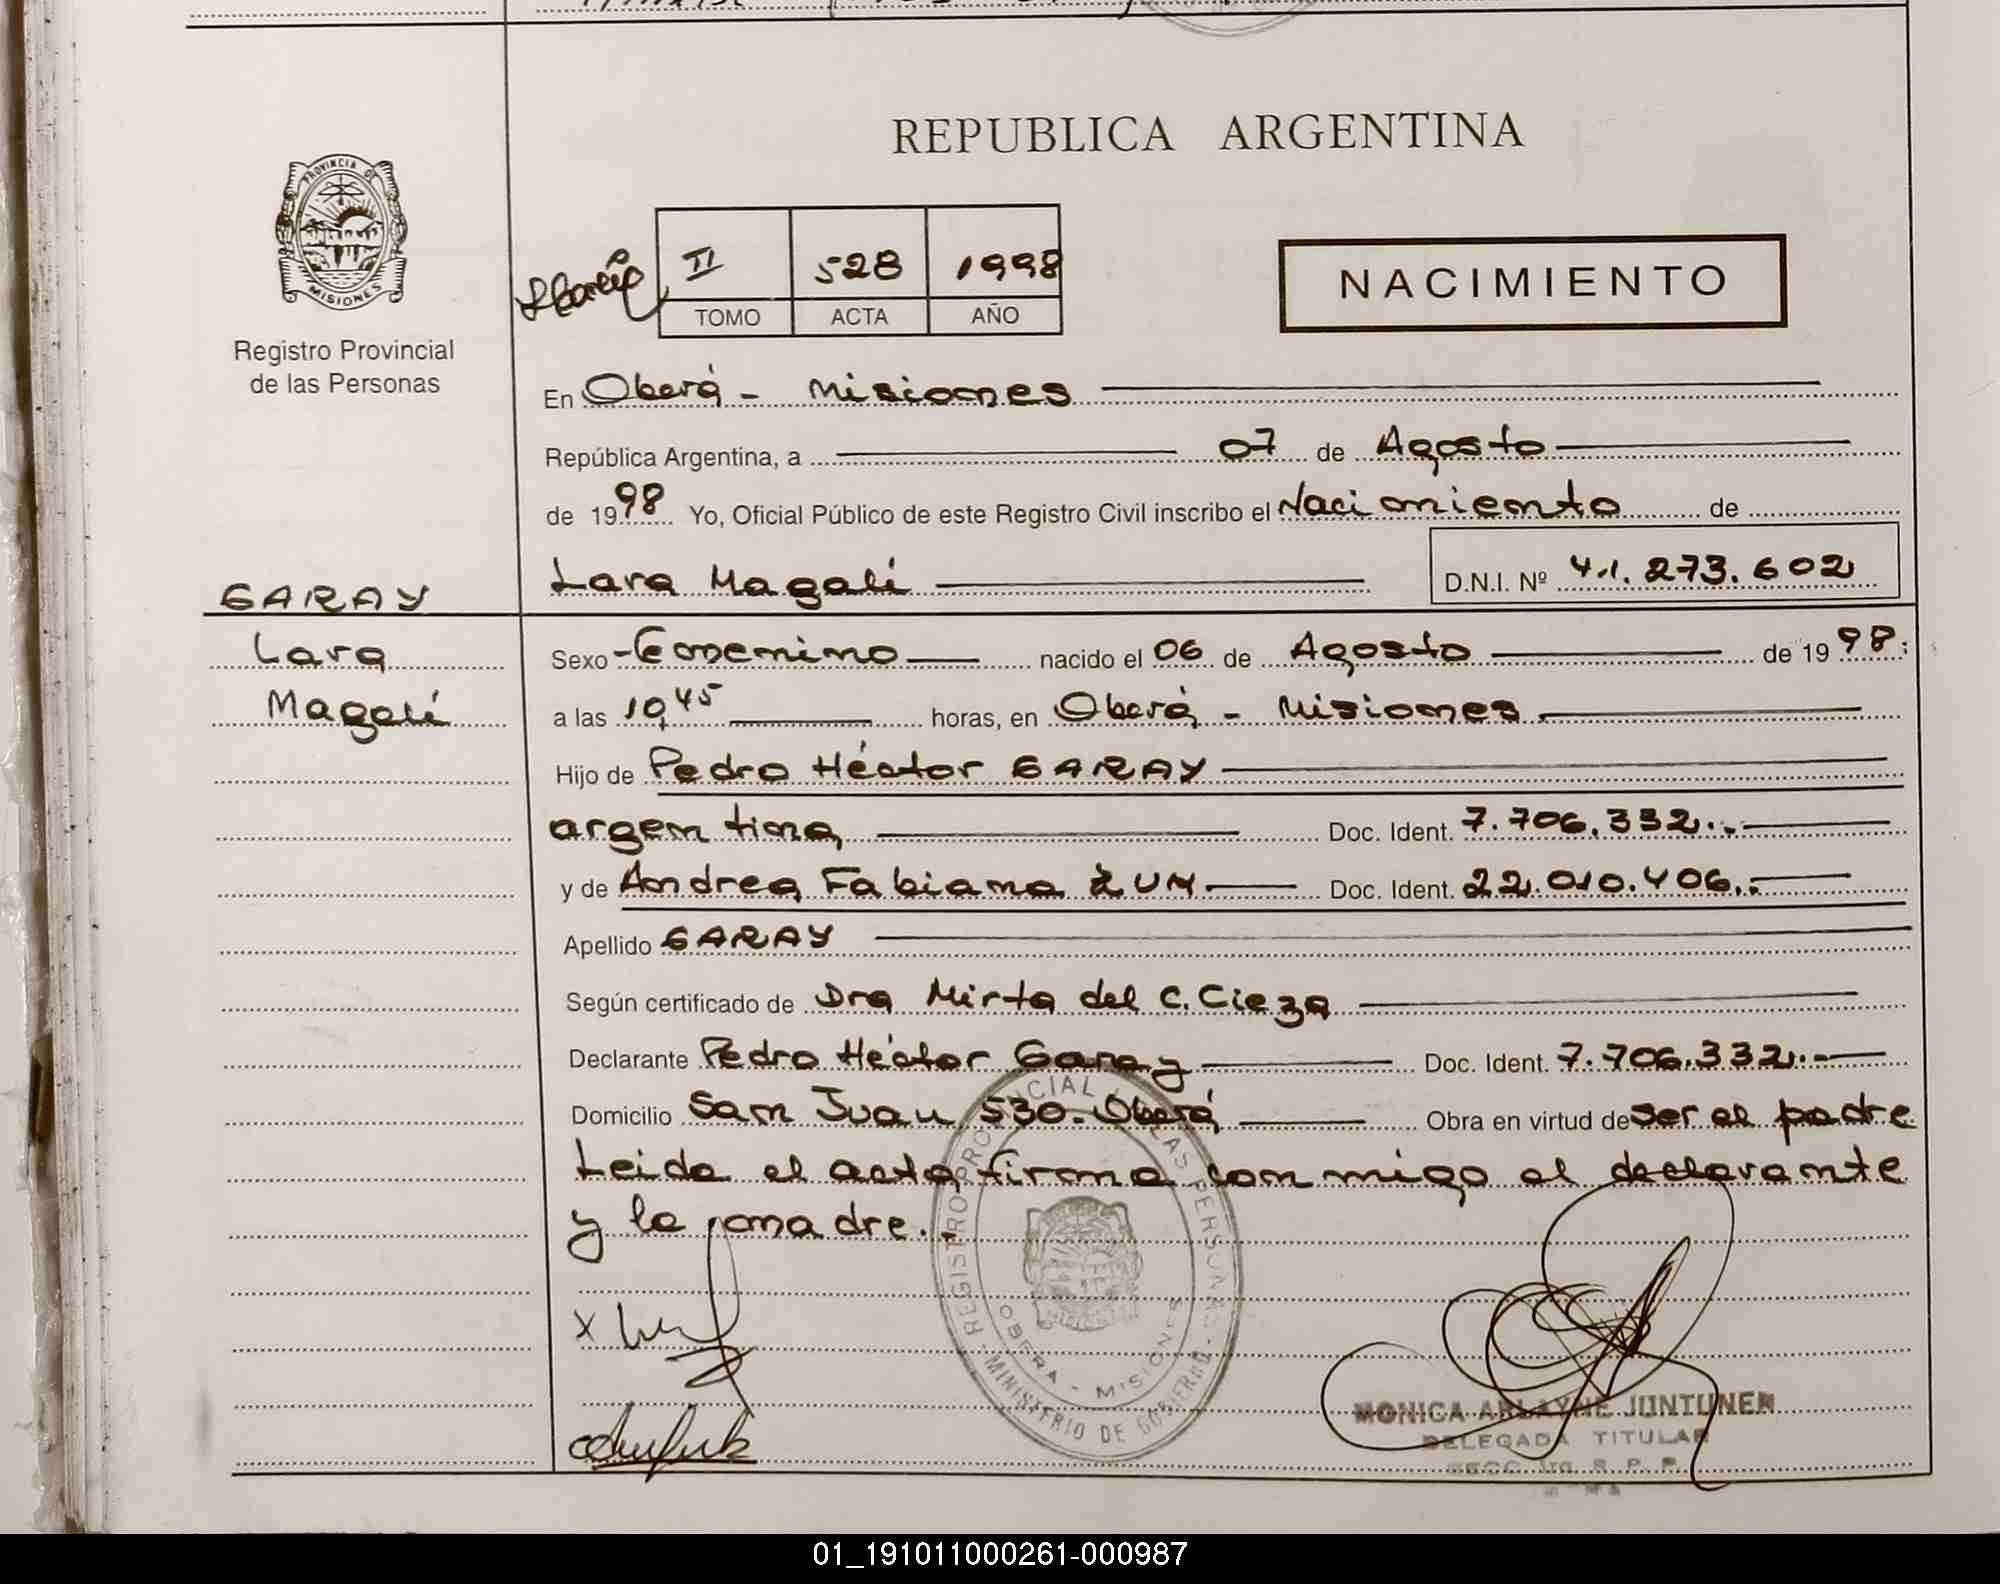 REPUBLICA ARGENTINA
PROVINCIA DE
MISIONES
Registro Provincial
de las Personas
II 528 1998
TOMO ACTA AÑO
NACIMIENTO
En Oberá - Misiones
República Argentina, a 07 de Agosto
de 1998 Yo, Oficial Público de este Registro Civil inscribo el Nacimiento de
Lara Magalí D.N.I. Nº 41.273.602
GARAY
Lara
Magalí
Sexo Femenino nacido el 06 de Agosto de 1998:
a las 10,45 horas, en Oberá - Misiones
Hijo de Pedro Héctor GARAY
argentina Doc. Ident. 7.706.332.-
y de Andrea Fabiana ZUM Doc. Ident. 22.010.406.-
Apellido GARAY
Según certificado de Dra Mirta del C. Cieza
Declarante Pedro Héctor Garay Doc. Ident. 7.706.332.-
Domicilio San Juan 530-Oberá Obra en virtud de ser el padre
Leida el acta firma conmigo el declarante
y la madre.
REGISTRO PROVINCIAL DE LAS PERSONAS - MINISTERIO DE GOBIERNO -
OBERA - MISIONES
MONICA ARLAYNE JUNTUNEN
DELEGADA TITULAR
01_191011000261-000987